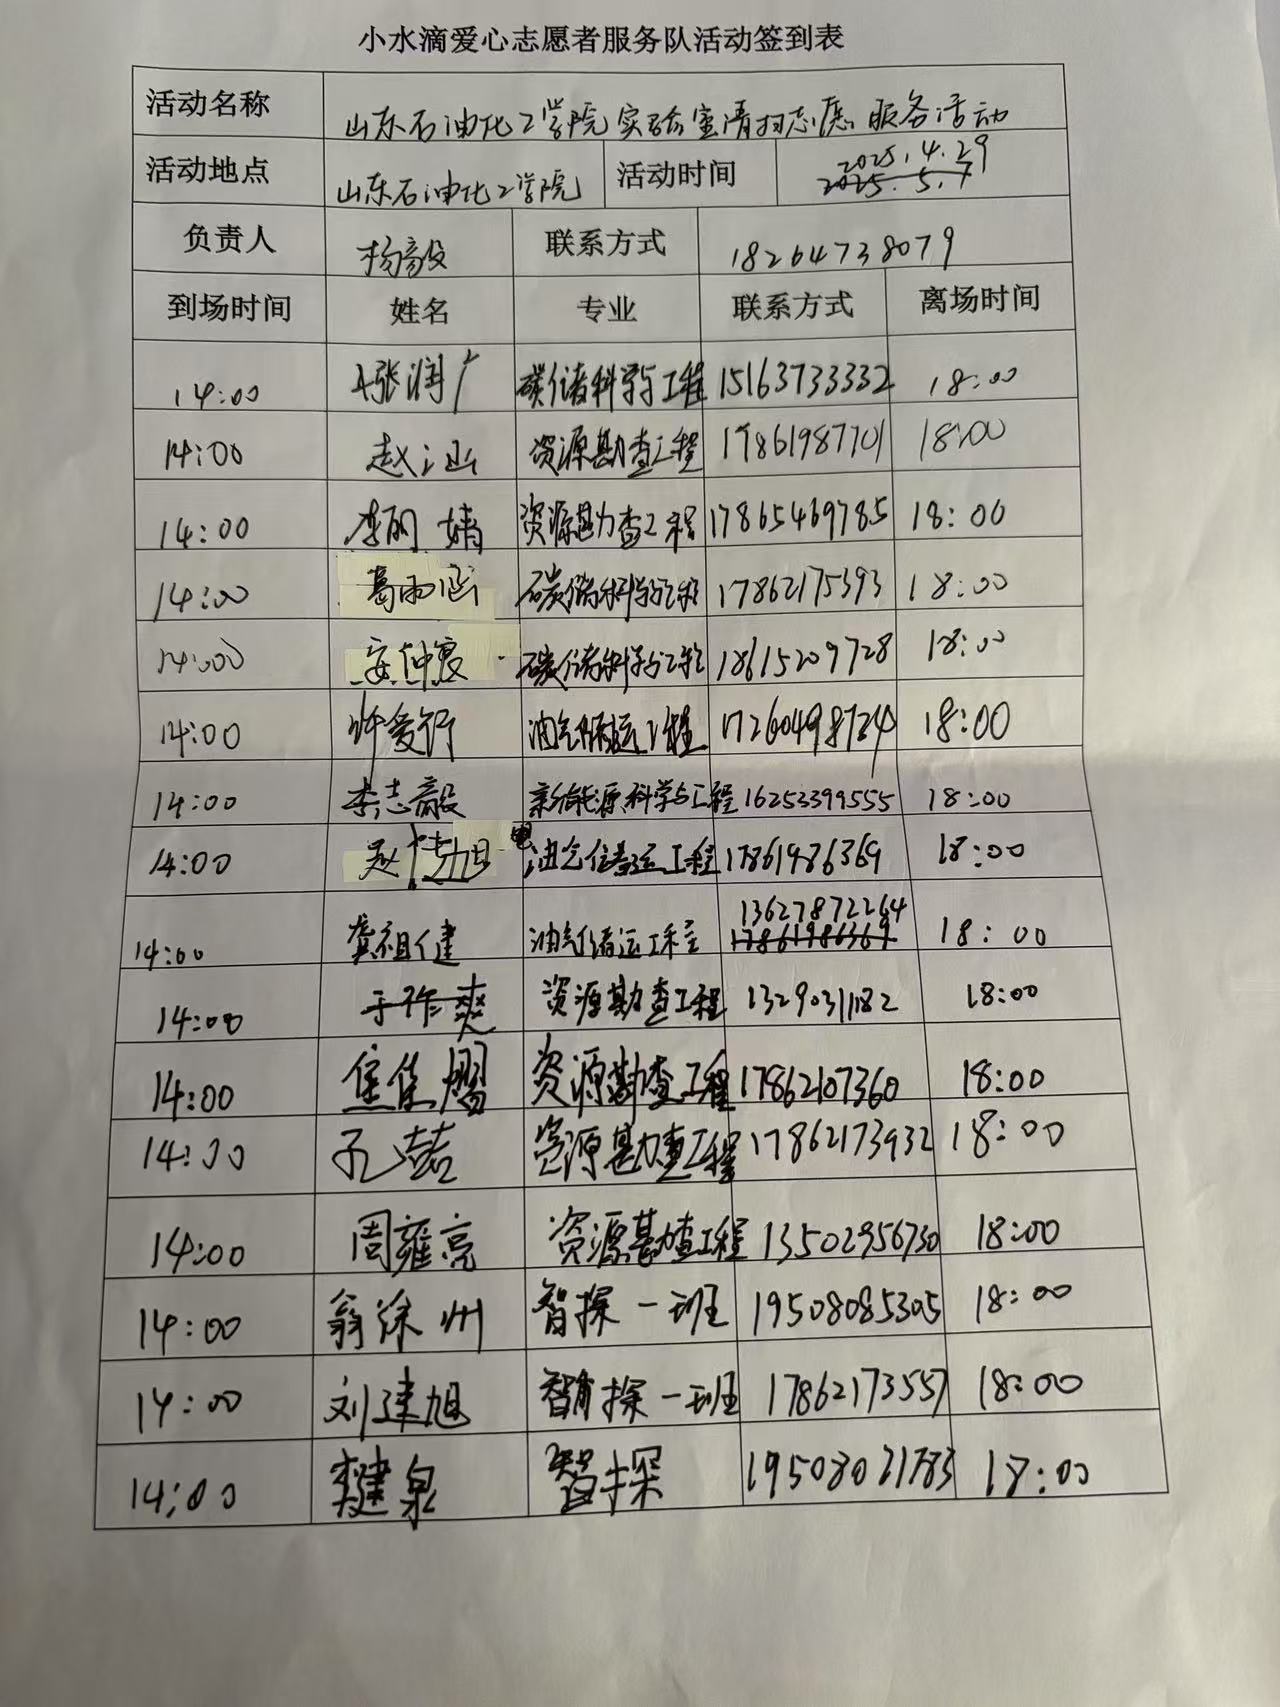 小水滴爱心志愿者服务队活动签到表
活动名称 山东石油化工学院实验室清扫志愿服务活动
活动地点 山东石油化工学院 活动时间 2025.4.29
2025.5.7
负责人 杨毅 联系方式 18264738079
到场时间 姓名 专业 联系方式 离场时间
14:00 张润广 碳储科学与工程 15163733332 18:00
14:00 赵汕 资源勘查工程 17861987701 18:00
14:00 李丽婧 资源勘查工程 17865469785 18:00
14:00 葛雨涵 碳储科学与工程 17862175393 18:00
14:00 安仲宸 碳储科学与工程 18615209728 18:00
14:00 许爱行 油气储运工程 17260498724 18:00
14:00 李志毅 新能源科学与工程 16253399555 18:00
14:00 赵旭 油气储运工程 17861986369 18:00
14:00 龚祖健 油气储运工程 13627872264 18:00
17861986369
14:00 于祚爽 资源勘查工程 1329031182 18:00
14:00 焦焦熠 资源勘查工程 17862107360 18:00
14:00 孔喆 资源勘查工程 17862173932 18:00
14:00 周雍亮 资源勘查工程 13502956730 18:00
14:00 翁徐州 智探一班 19508085305 18:00
14:00 刘建旭 智探一班 17862173557 18:00
14:00 健泉 智探 19508021783 18:00